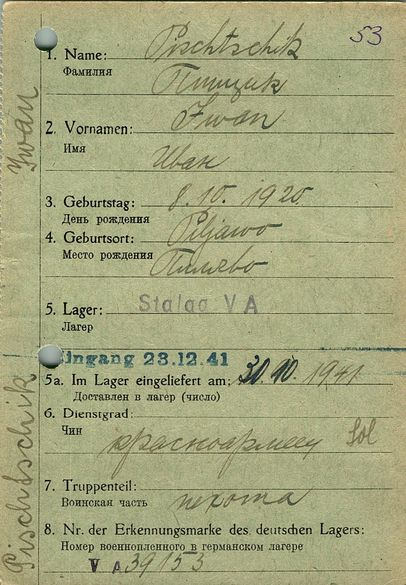 53
1. Name: Pischtschik
Фамилия
Пищик
2. Vornamen: Iwan
Имя
Иван
3. Geburtstag: 8. 10. 1920
День рождения
4. Geburtsort: Piljawo
Место рождения
Пилево
5. Lager: Stalag V A
Лагер
Eingang 23.12.41
5a. Im Lager eingeliefert am: 30. 10. 1941
Доставлен в лагер (число)
6. Dienstgrad:
Чин
красноармеец Sol
7. Truppenteil:
Воинская часть пехота
8. Nr. der Erkennungsmarke des deutschen Lagers:
Номер военнопленного в германском лагере
V A 39153
Pischtschik Iwan